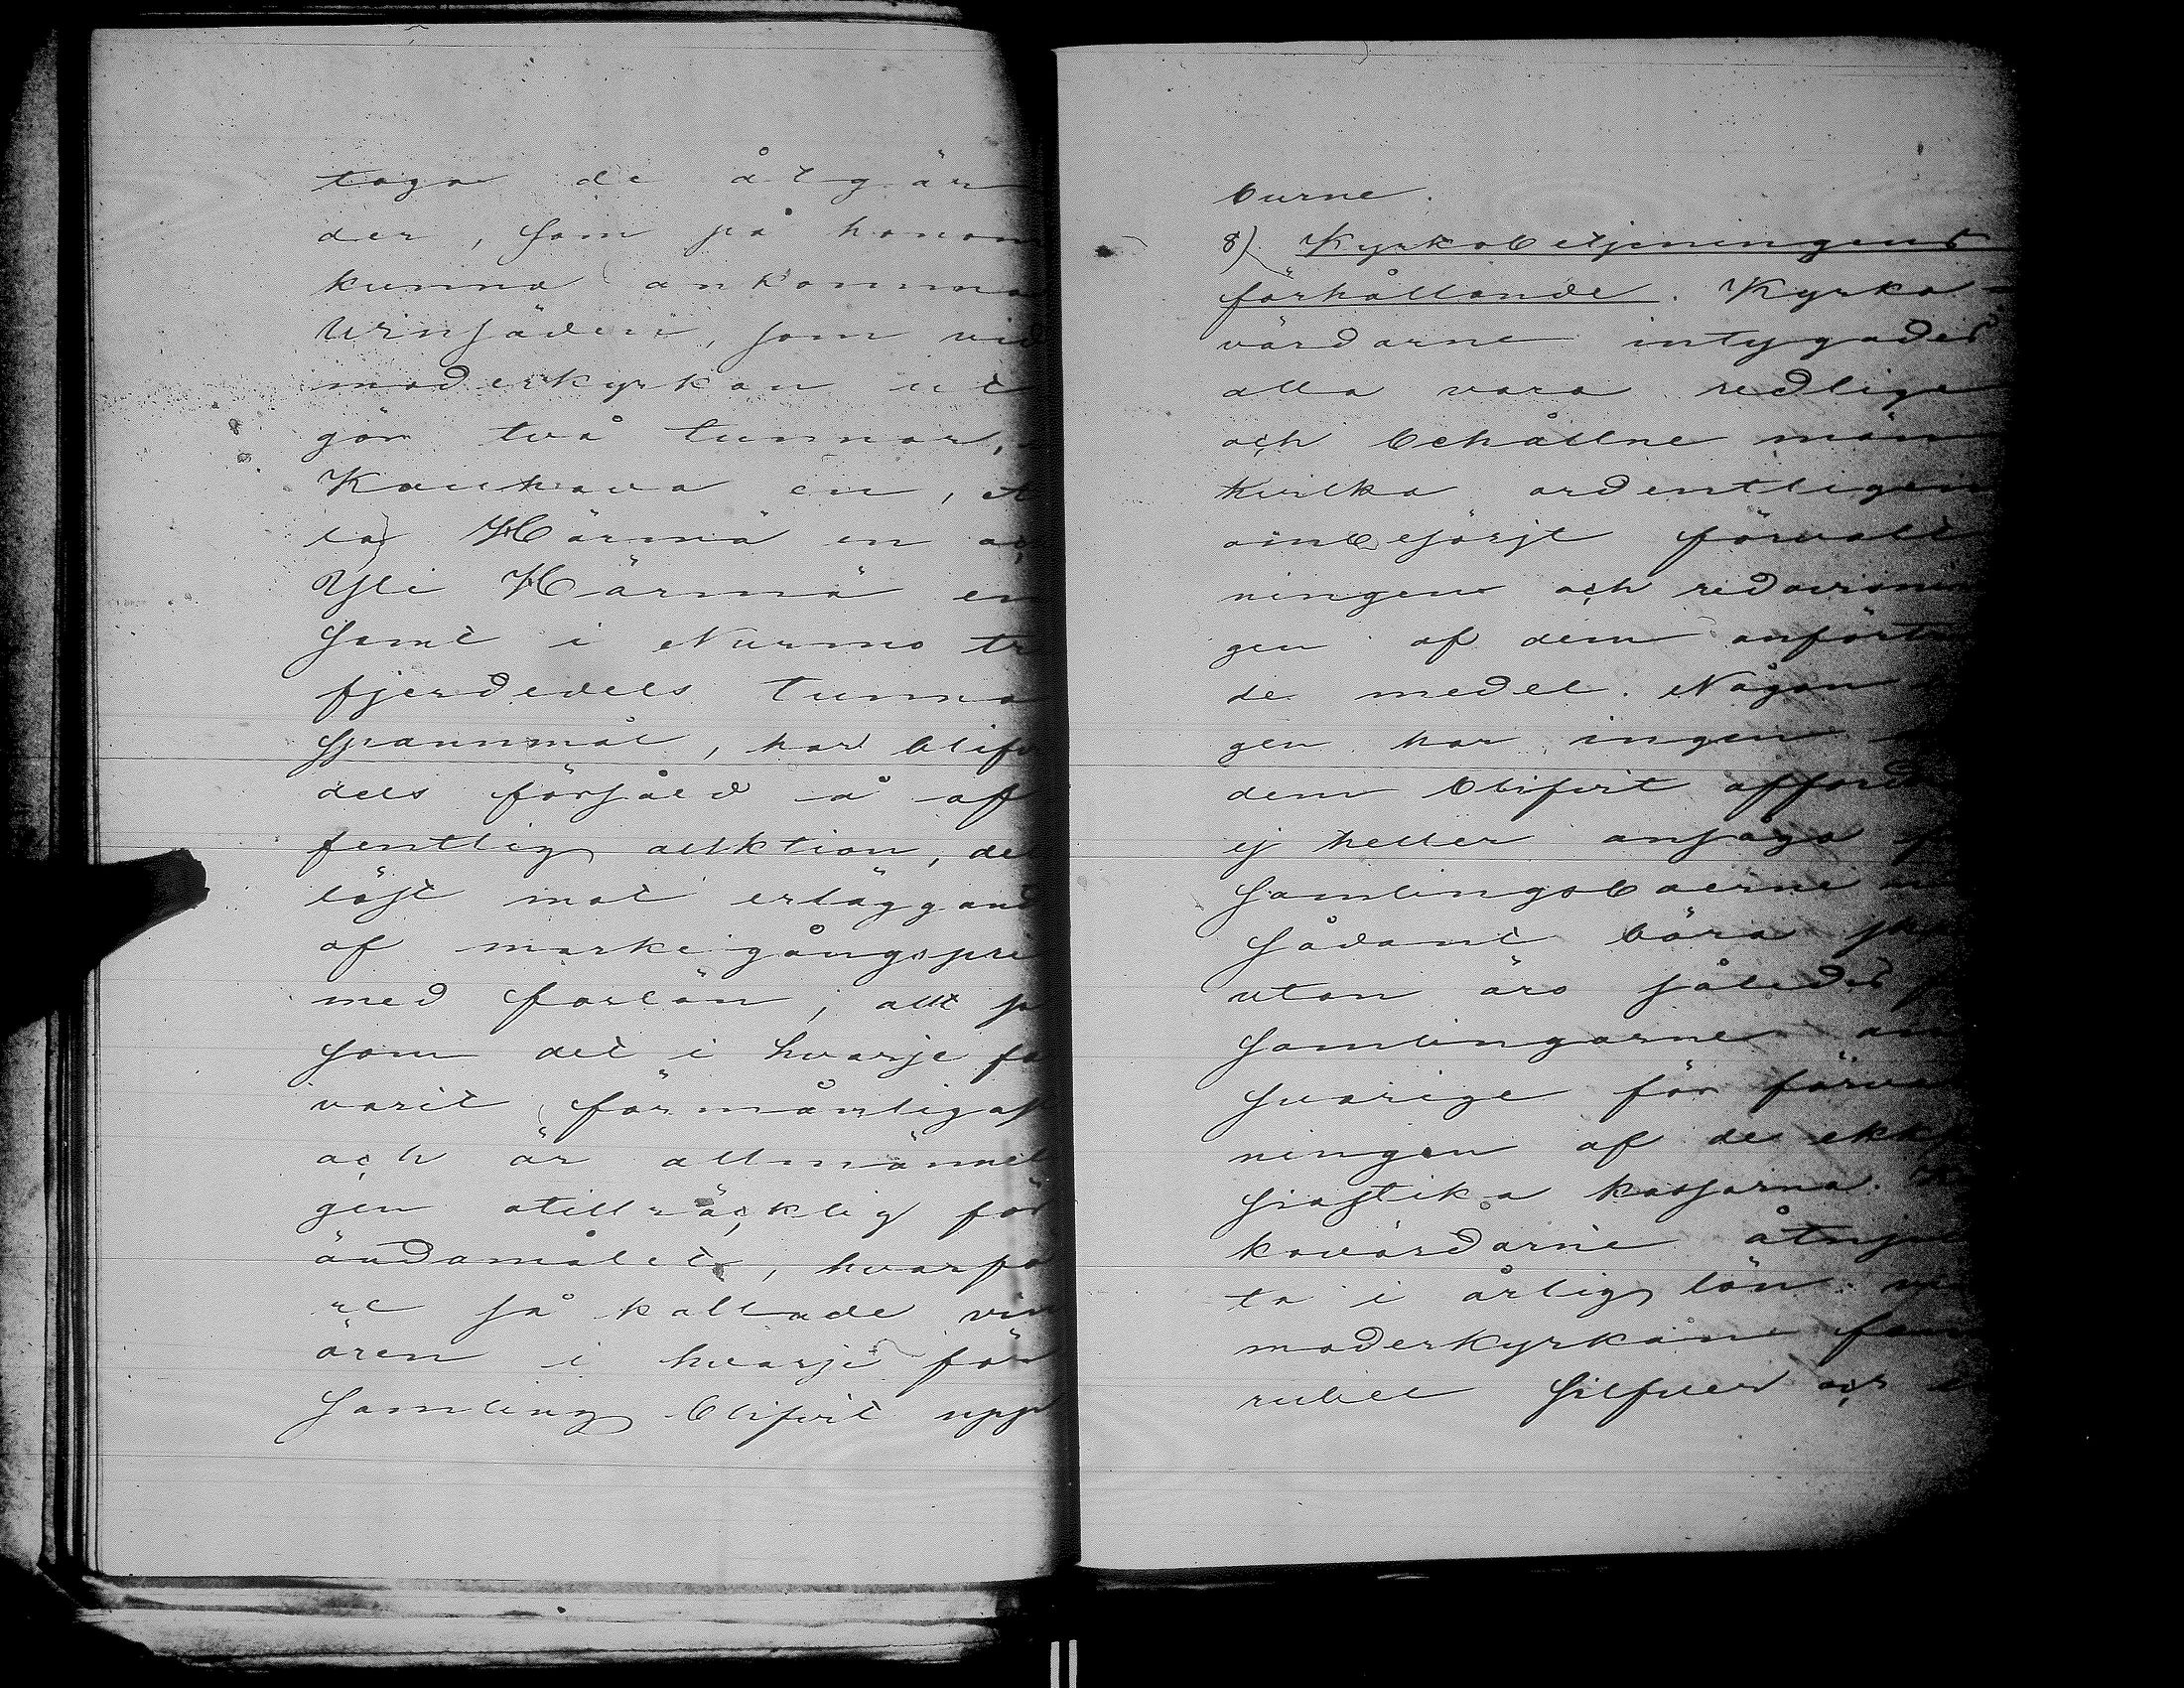 taga de åtgär
der, som på honom
kunna ankomma
Vinsäden, som vid
moderkyrkan ut
gör två tunnor,
Kauhava en, A
la Härmä en och
Yli Härmä en
samt i Nurmo tre
fjerdedels tunna
spannmål, har blifvi
dels försåld å of
fentlig auktion, dels
löst mot erläggande
af markegångspris
med forlön, allt så
som det i hvarje fa
varit förmånligast
och är allmänneli
gen otillräcklig för
ändamålet, hvarfö
re så kallade vin
ören i hvarje för
samling blifvit upp
burne.
8) Kyrkobetjeningens
förhållande. Kyrko-
värdarne intygades
alla vara redlige
och behållne män
hvilka ordentligen
ombesörjt förvalt
ningen och redovisnin
gen af dem anförtro
de medel. Någon
gen har ingen
dem blifvit affordr
ej heller ansågo fö
samlingsboerne
sådant böra
utan äro således fö
samlingarne an
svarige för förval
ningen af de ekkle
siastika kassorna. Kyr
kovärdarne åtnju
ta i årlig lön:
moderkyrkan fem
rubel silfver och